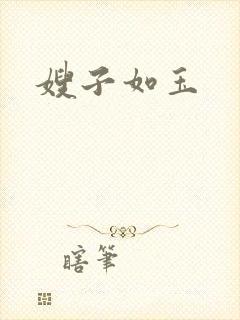 嫂子如玉
瞎筆